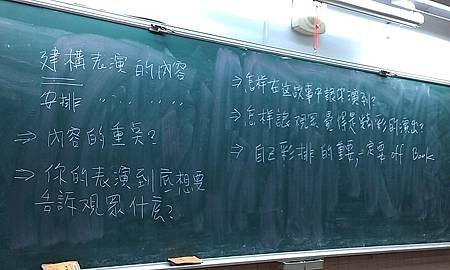 建構表演的內容
安排 〃 〃 〃 〃
⇒ 內容的重點?
⇒ 你的表演到底想要
告訴觀眾什麼?
⇒ 怎樣在這故事中報你演到?
⇒ 怎樣讓觀眾覺得是精彩的演出?
⇒ 自己彩排的重要,一定要 off Book